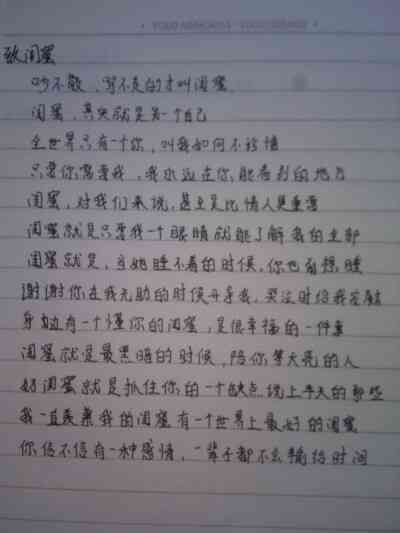 致闺蜜
吵不散,骂不走的才叫闺蜜
闺蜜,其实就是另一个自己
全世界只有一个你,叫我如何不珍惜
只要你需要我,我永远在你能看到的地方
闺蜜,对我们来说,甚至是比情人更重要
闺蜜就是只要我一个眼睛就能了解我的全部
闺蜜就是,当她睡不着的时候,你也别想睡
谢谢你在我无助的时候安慰我,哭泣时给我
身边有一个懂你的闺蜜,是很幸福的一件事
闺蜜就是最黑暗的时候,陪你等天亮的人
好闺蜜就是抓住你的一个缺点说上半天的那些
我一直羡慕我的闺蜜有一个世界上最好的闺蜜
你信不信有一种感情,一辈子都不会输给时间